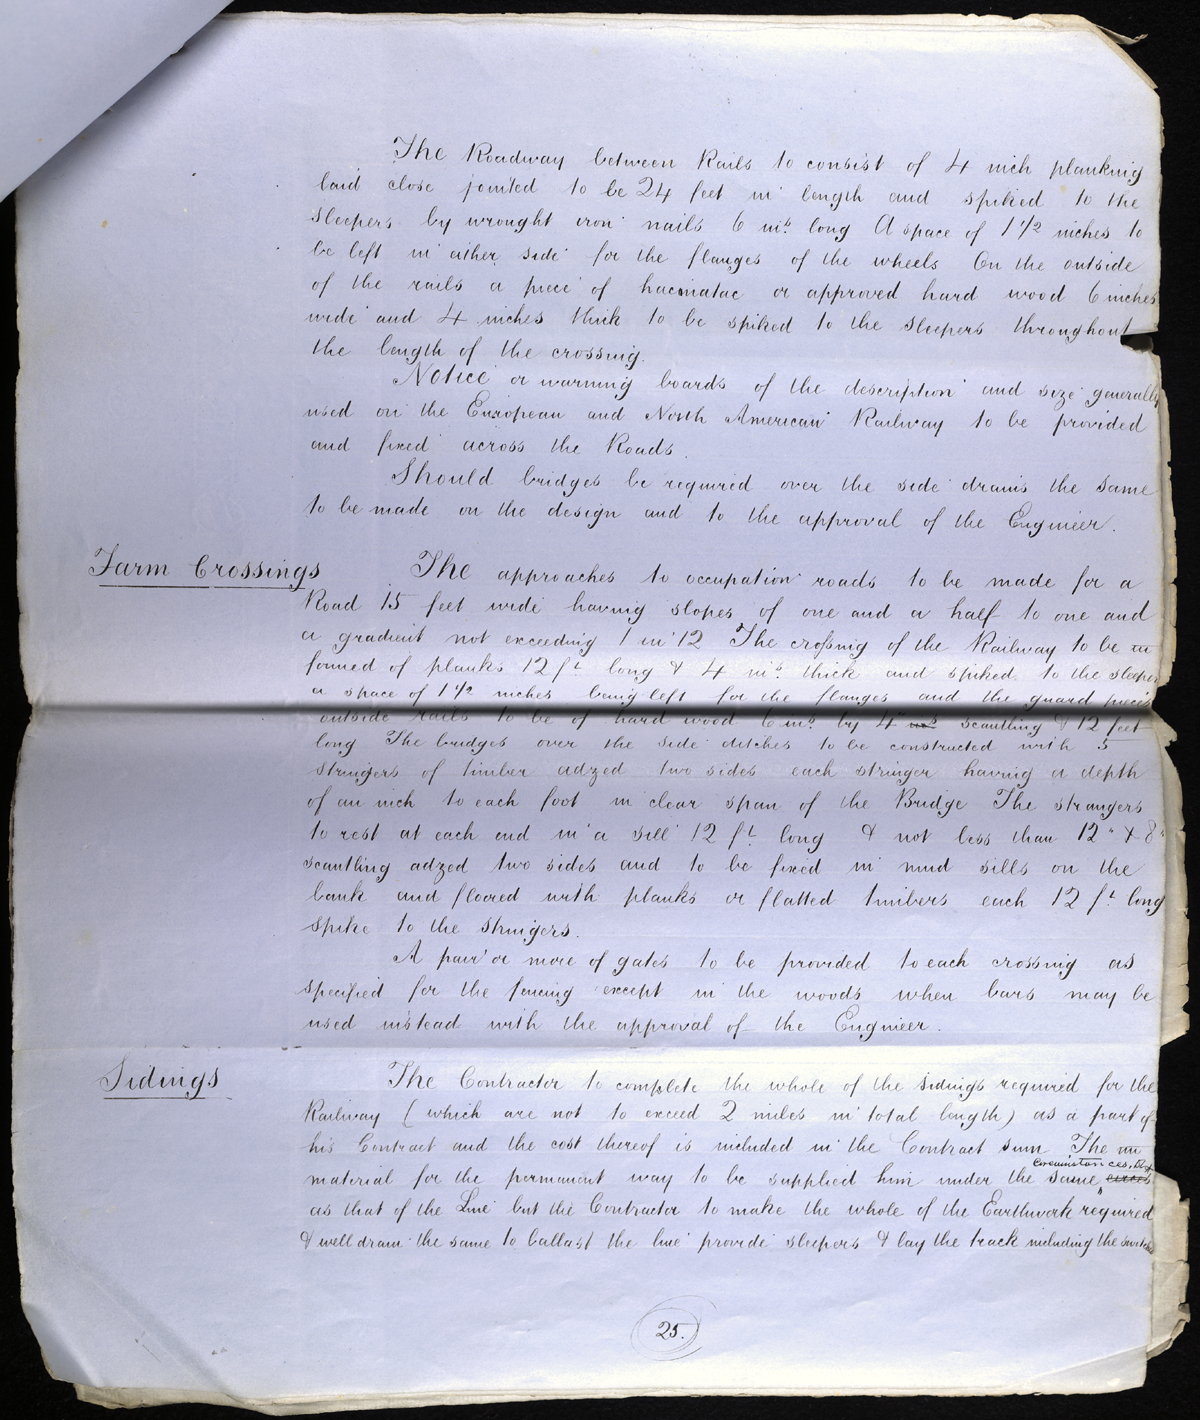 The Roadway between Rails to consist of 4 inch planking
laid close jointed to be 24 feet in length and spiked to the
sleepers by wrought iron nails 6 ins. long A space of 1 1/2 inches to
be left in either side for the flanges of the wheels On the outside
of the rails a piece of hacmatac or approved hard wood 6 inches
wide and 4 inches thick to be spiked to the sleepers throughout
the length of the crossing.
Notice or warning boards of the description and size generally
used on the European and North American Railway to be provided
and fixed across the Roads.
Should bridges be required over the side drains the same
to be made on the design and to the approval of the Engineer.
Farm Crossings The approaches to occupation roads to be made for a
Road 15 feet wide having slopes of one and a half to one and
a gradient not exceeding 1 in 12 The crossing of the Railway to be
formed of planks 12 ft long & 4 ins. thick and spiked to the sleepers
a space of 1 1/2 inches being left for the flanges and the guard pieces
outside rails to be of hard wood 6 ins. by 4" ins scantling & 12 feet
long The bridges over the side ditches to be constructed with 5
stringers of timber adzed two sides each stringer having a depth
of an inch to each foot in clear span of the Bridge The strangers
to rest at each end in a sill 12 ft long & not less than 12" & 8"
scantling adzed two sides and to be fixed in mud sills on the
bank and floored with planks or flatted timbers each 12 ft long
spike to the stringers.
A pair or more of gates to be provided to each crossing as
specified for the fencing except in the woods when bars may be
used instead with the approval of the Engineer.
Sidings The Contractor to complete the whole of the sidings required for the
Railway (which are not to exceed 2 miles in total length) as a part of
his Contract and the cost thereof is included in the Contract sum The
circumstances
material for the permanent way to be supplied him under the same
as that of the Line but the Contractor to make the whole of the Earthwork required
& well drain the same to ballast the line provide sleepers & lay the track including the switches
25.